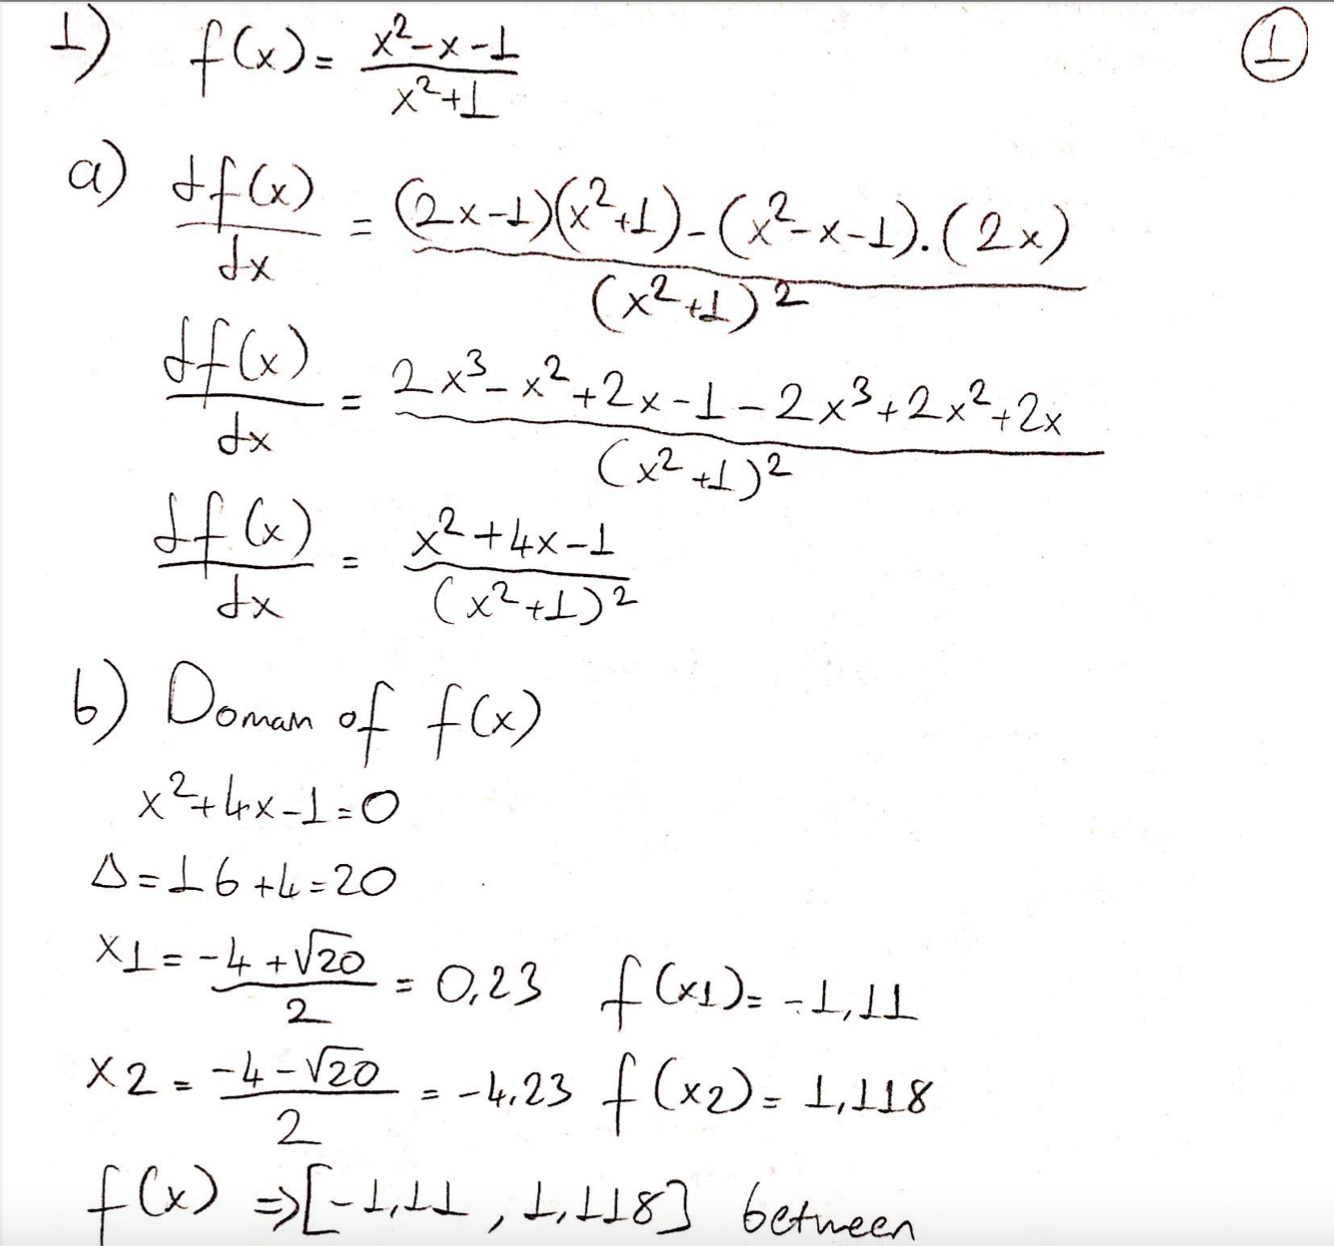 1) f(x) = (x²-x-1)/(x²+1) ①
a) df(x)/dx = ((2x-1)(x²+1)-(x²-x-1).(2x))/(x²+1)²
df(x)/dx = (2x³-x²+2x-1-2x³+2x²+2x)/(x²+1)²
df(x)/dx = (x²+4x-1)/(x²+1)²
b) Doman of f(x)
x²+4x-1=0
Δ=16+4=20
x1 = (-4+√20)/2 = 0,23 f(x1)= -1,11
x2 = (-4-√20)/2 = -4,23 f(x2)= 1,118
f(x) ⇒[-1,11 , 1,118] between